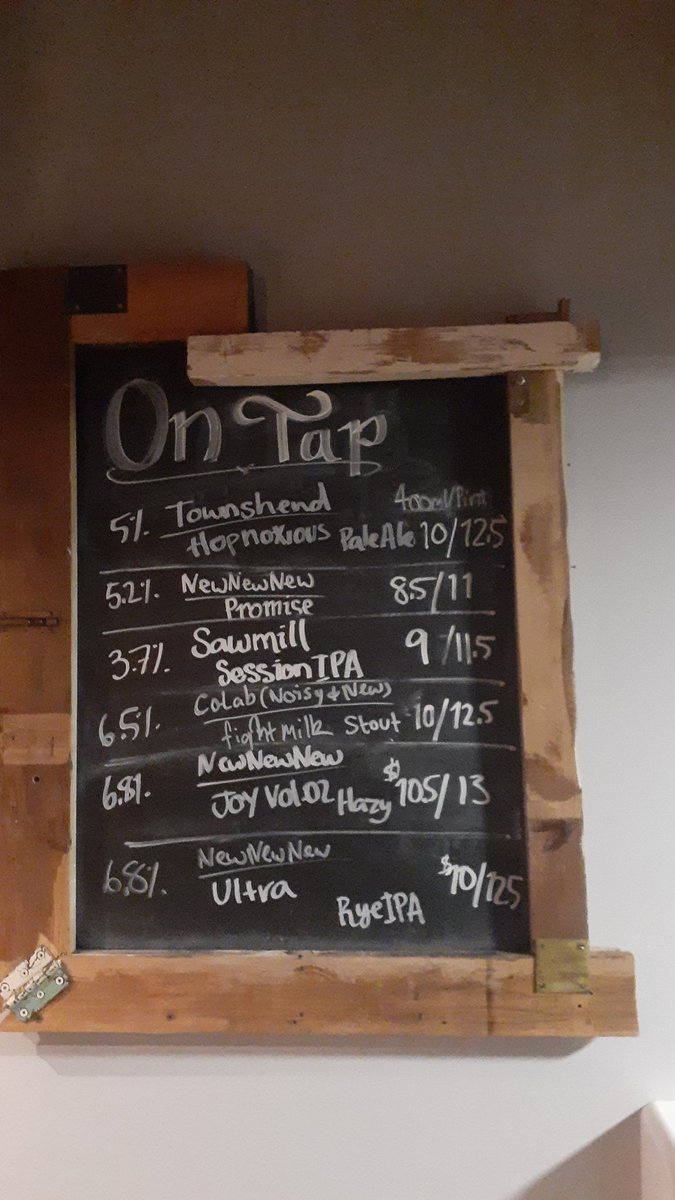 On Tap
400ml/Pint
5% Townshend
Hopnoxious Pale Ale 10/12.5
5.2% NewNewNew 8.5/11
Promise
3.7% Sawmill 9/11.5
Session IPA
6.5% Colab (Noisy + New)
fight Milk Stout 10/12.5
6.8% NewNewNew
Joy Vol.02 Hazy $10.5/13
6.8% NewNewNew
Ultra $10/12.5
Rye IPA